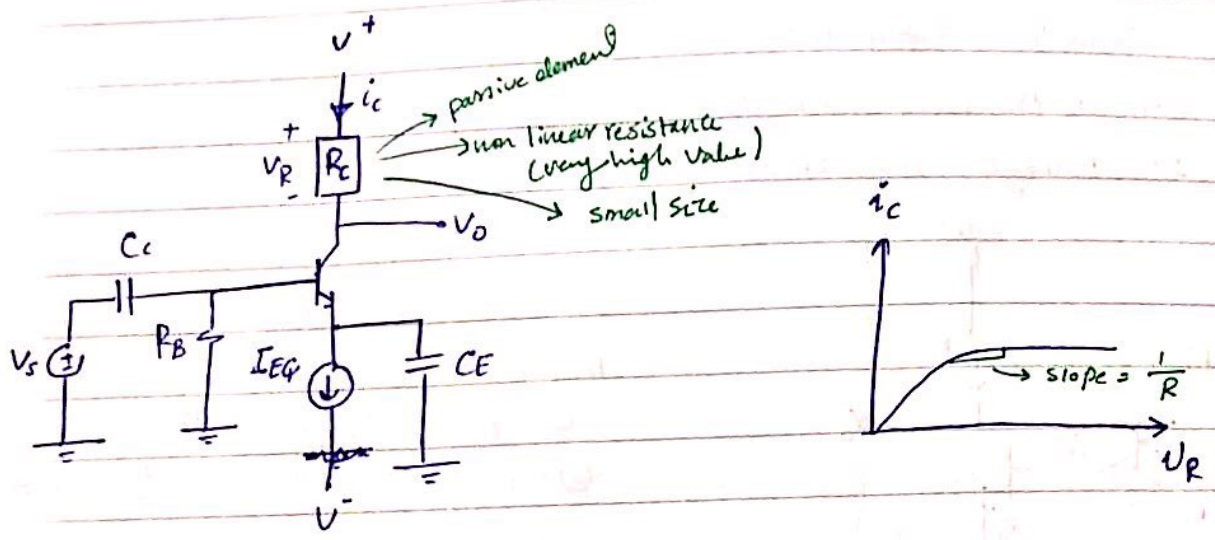 V+
i_c
passive element
non linear resistance
(very high value)
small size
+
V_R
-
R_C
V_O
C_c
R_B
V_s
I_EQ
C_E
V-
i_c
slope = 1/R
V_R